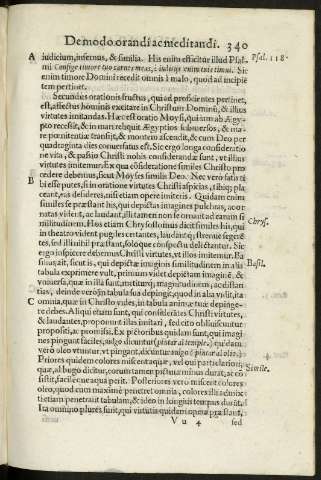 De modo orandi ac meditandi. 340
A iudicium, infernus, & similia. His enim efficitur illud Psal. Psal. 118.
mi Confige timore tuo carnes meas, à iudicijs enim tuis timui. Sic
enim timore Domini recedit omnis à malo, quod ad incipiē
tem pertinet.
Secundus orationis fructus, qui ad proficientes pertinet,
est, affectus hominis excitare in Christum Dominū, & illius
virtutes imitandas. Hæc est oratio Moysi, qui iam ab Ægy-
pto recessit, & in mari reliquit Ægyptios submersos, & ma-
re pœnitentiæ transiit, & montem ascendit, & cum Deo per
quadraginta dies conuersatus est. Sic ergo longa consideratio
ne vita, & passio Christi nobis considerandæ sunt, vt illius
virtutes imitemur. Ex qua cōsideratione similes Christo pro
B cedere debemus, sicut Moyses similis Deo. Nec verò satis ti
bi esse putes, si in oratione virtutes Christi aspicias, tibiq; pla
ceant, nisi desideres, nisi etiam opere imiteris. Quidam enim
similes se præstant his, qui depictas imagines pulchras, ac or-
natas vident, ac laudant, illi tamen non se ornant ad earum si
militudinem. Hos etiam Chrysostomus dicit similes his, qui Chrys.
in theatro vident pugiles certantes, laudantq; strenuè segerē
tes, sed illi nihil præstant, soloque conspectu delectantur. Sic
ergo inspicere debemus Christi virtutes, vt illos imitemur. Ba Basil.
silius, ait, sunt is, qui depictæ imaginis similitudinem in alia
tabula exprimere vult, primum videt depictam imaginē, &
vniuersa, quæ in illa sunt, intuiturq; magnitudinem, ac distan
tias, deinde verò in tabula sua depingit, quod in alia vidit, ita
C omnia, quæ in Christo vides, in tabula animæ tuæ depinge-
re debes. Aliqui etiam sunt, qui considerātes Christi virtutes,
& laudantes, proponunt illas imitari, sed cito obliuiscuntur
propositi, ac promissi. Ex pictoribus quidam sunt, qui imagi
nes pingunt faciles, vulgo dicuntur (pintar al temple,) quidam
verò oleo vtuntur, vt pingant, dicuntur vulgò (pintar al olio.)
Priores quidem colores miscent aquæ, vel oui particulæ, aq; Simile.
quæ, al bugo dicitur, eorum tamen pictura minus durat, ac cō
sistit, facilè cum aqua perit. Posteriores verò miscent colores
oleo, quod cum maximè penetret omnia, colores illi admixti
tietiam penetrant tabulam, & ideo in longius tempus durāt.
Ita omnino plures sunt, qui virtutis quidem opera præstant,
Vu 4 sed